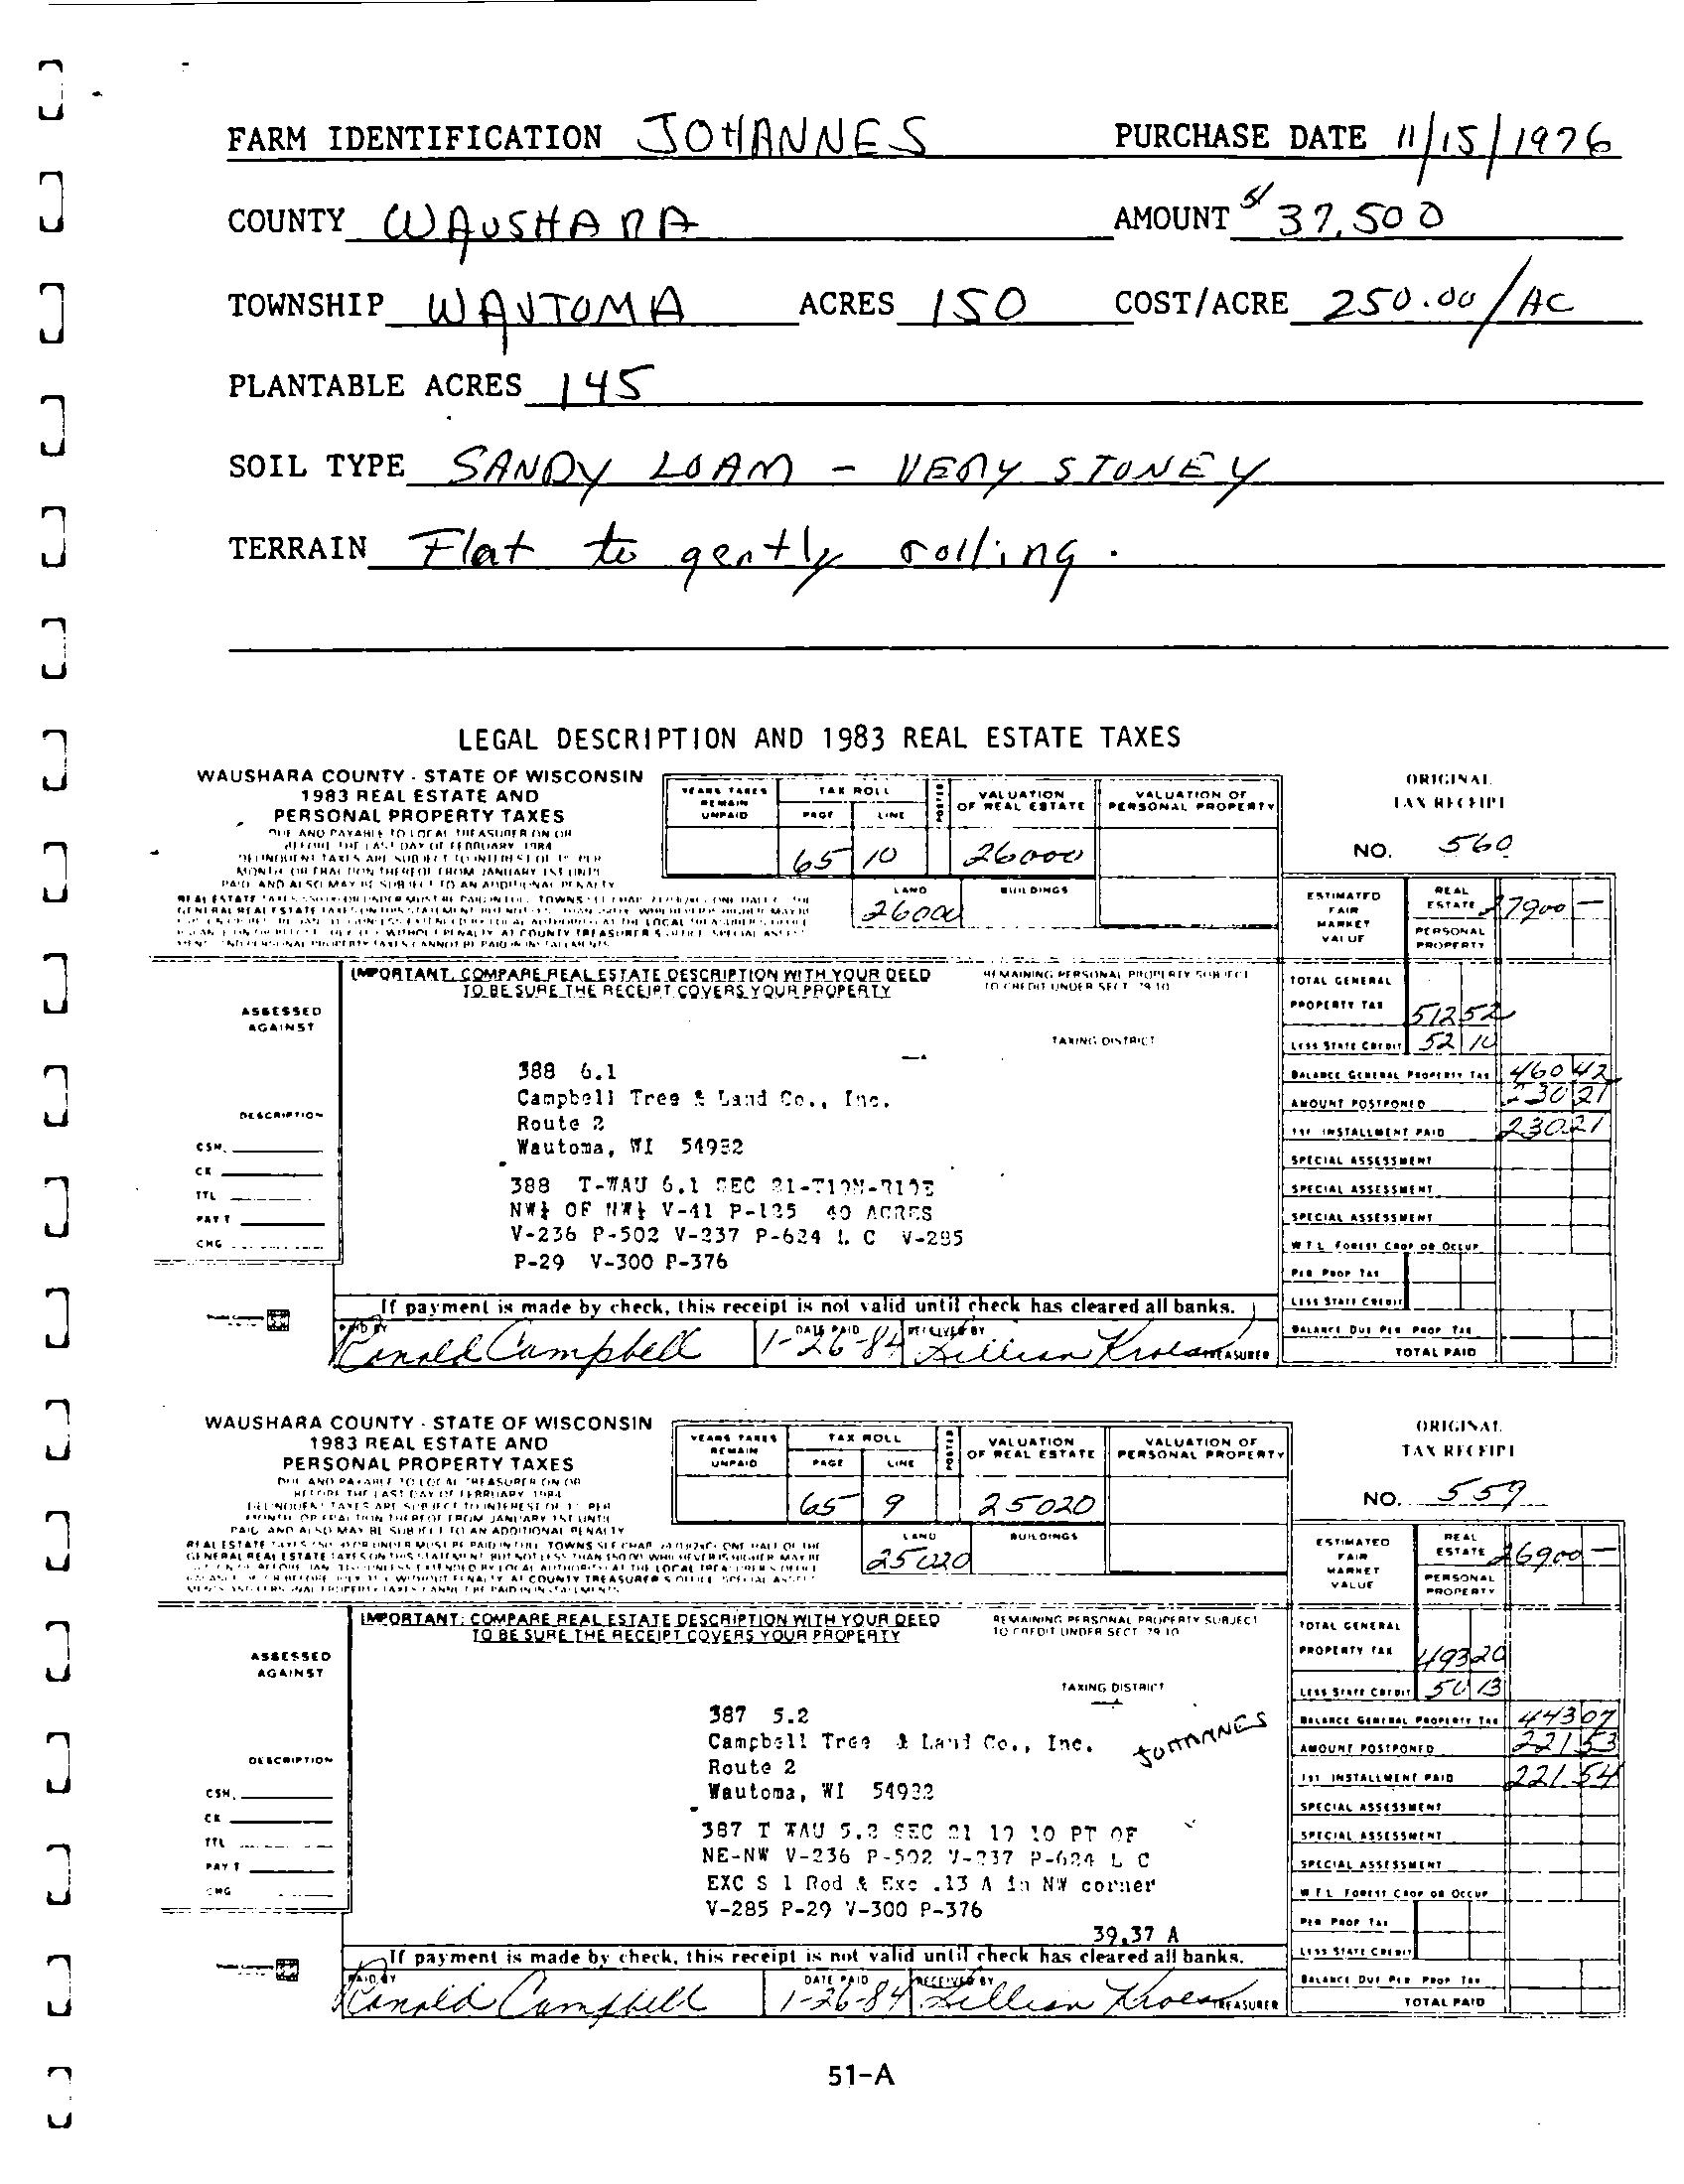 FARM IDENTIFICATION JOHANNES PURCHASE DATE 11/15/1976
COUNTY WAUSHARA AMOUNT $ 37,500
TOWNSHIP WAUTOMA ACRES 150 COST/ACRE 250.00/AC
PLANTABLE ACRES 145
SOIL TYPE SANDY LOAM - VERY STONEY
TERRAIN Flat to gently rolling.
LEGAL DESCRIPTION AND 1983 REAL ESTATE TAXES
WAUSHARA COUNTY - STATE OF WISCONSIN
1983 REAL ESTATE AND
PERSONAL PROPERTY TAXES
DUE AND PAYABLE TO LOCAL TREASURER ON OR
BEFORE THE LAST DAY OF FEBRUARY 1984
YEARS TAXES REMAIN UNPAID
TAX ROLL
PAGE LINE
POSTED
VALUATION OF REAL ESTATE
VALUATION OF PERSONAL PROPERTY
65 10 26000
LAND BUILDINGS
26000
ORIGINAL
TAX RECEIPT
NO. 560
ESTIMATED FAIR MARKET VALUE
REAL ESTATE 27900 —
PERSONAL PROPERTY
IMPORTANT: COMPARE REAL ESTATE DESCRIPTION WITH YOUR DEED
TO BE SURE THE RECEIPT COVERS YOUR PROPERTY
REMAINING PERSONAL PROPERTY SUBJECT
TO CREDIT UNDER SECT. 79.10
TAXING DISTRICT
ASSESSED
AGAINST
388 6.1
Campbell Tree & Land Co., Inc.
Route 2
Wautoma, WI 54982
DESCRIPTION
CSH.
CK
TTL
PAY'T
CHG
388 T-WAU 6.1 SEC 21-T19N-R10E
NW¼ OF NW¼ V-41 P-125 40 ACRES
V-236 P-502 V-237 P-624 L C V-285
P-29 V-300 P-376
TOTAL GENERAL
PROPERTY TAX 512 52
LESS STATE CREDIT 52 10
BALANCE GENERAL PROPERTY TAX 460 42
AMOUNT POSTPONED 230 21
1ST INSTALLMENT PAID 230 21
SPECIAL ASSESSMENT
SPECIAL ASSESSMENT
SPECIAL ASSESSMENT
W.T.L. FOREST CROP OR OCCUP
PER PROP TAX
LESS STATE CREDIT
BALANCE DUE PER PROP TAX
TOTAL PAID
If payment is made by check, this receipt is not valid until check has cleared all banks.
PAID BY Ronald Campbell DATE PAID 1-26-84 RECEIVED BY Lillian TREASURER
WAUSHARA COUNTY - STATE OF WISCONSIN
1983 REAL ESTATE AND
PERSONAL PROPERTY TAXES
DUE AND PAYABLE TO LOCAL TREASURER ON OR
BEFORE THE LAST DAY OF FEBRUARY 1984
YEARS TAXES REMAIN UNPAID
TAX ROLL
PAGE LINE
POSTED
VALUATION OF REAL ESTATE
VALUATION OF PERSONAL PROPERTY
65 9 25020
LAND BUILDINGS
25020
ORIGINAL
TAX RECEIPT
NO. 559
ESTIMATED FAIR MARKET VALUE
REAL ESTATE 26900 —
PERSONAL PROPERTY
IMPORTANT: COMPARE REAL ESTATE DESCRIPTION WITH YOUR DEED
TO BE SURE THE RECEIPT COVERS YOUR PROPERTY
REMAINING PERSONAL PROPERTY SUBJECT
TO CREDIT UNDER SECT. 79.10
TAXING DISTRICT
ASSESSED
AGAINST
387 5.2
Campbell Tree & Land Co., Inc. JOHANNES
Route 2
Wautoma, WI 54982
DESCRIPTION
CSH.
CK
TTL
PAY'T
CHG
387 T WAU 5.2 SEC 21 19 10 PT OF
NE-NW V-236 P-502 V-237 P-624 L C
EXC S 1 Rod & Exc .13 A in NW corner
V-285 P-29 V-300 P-376
39.37 A
TOTAL GENERAL
PROPERTY TAX 493 20
LESS STATE CREDIT 50 13
BALANCE GENERAL PROPERTY TAX 443 07
AMOUNT POSTPONED 221 53
1ST INSTALLMENT PAID 221 54
SPECIAL ASSESSMENT
SPECIAL ASSESSMENT
SPECIAL ASSESSMENT
W.T.L. FOREST CROP OR OCCUP
PER PROP TAX
LESS STATE CREDIT
BALANCE DUE PER PROP TAX
TOTAL PAID
If payment is made by check, this receipt is not valid until check has cleared all banks.
PAID BY Ronald Campbell DATE PAID 1-26-84 RECEIVED BY Lillian TREASURER
51-A